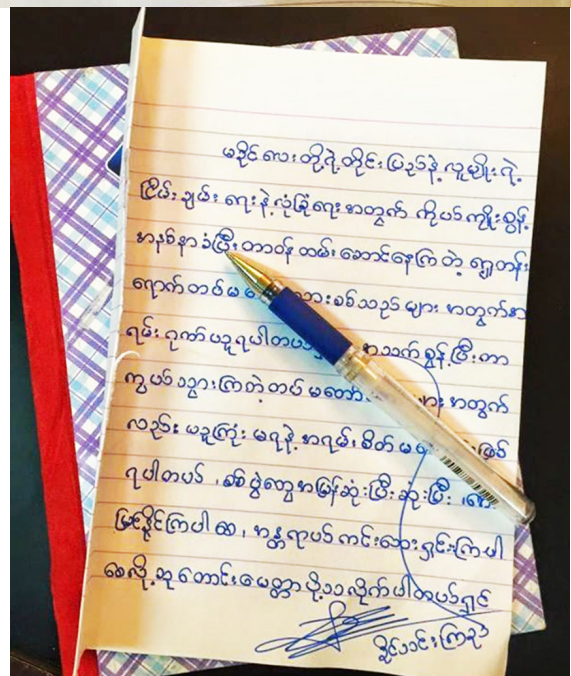 မခိုင်လေးတို့ရဲ့ တိုင်းပြည်နဲ့ လူမျိုးရဲ့
ငြိမ်းချမ်းရေးနဲ့ လုံခြုံရေးအတွက် ကိုယ်ကျိုးစွန့်
အနစ်နာခံပြီး တာဝန်ထမ်းဆောင်နေကြတဲ့ ရှေ့တန်း
ရောက်တပ်မ စစ်သည်များ အတွက်အ
ရမ်းဂုဏ်ယူရပါတယ် အသက်စွန့်ပြီးကာ
ကွယ်သွားကြတဲ့တပ်မတော် အတွက်
လည်း ယူကြုံးမရနဲ့ အရမ်းစိတ်မ ဖြစ်
ရပါတယ် ၊ စစ်ပွဲတွေအမြန်ဆုံးပြီးဆုံးပြီး ၊
နိုင်ကြပါစေ ၊ အန္တရာယ်ကင်းဝေးရှင်းကြပါ
စေလို့ဆုတောင်းမေတ္တာပို့သလိုက်ပါတယ်ရှင်
ခိုင်သင်းကြည်